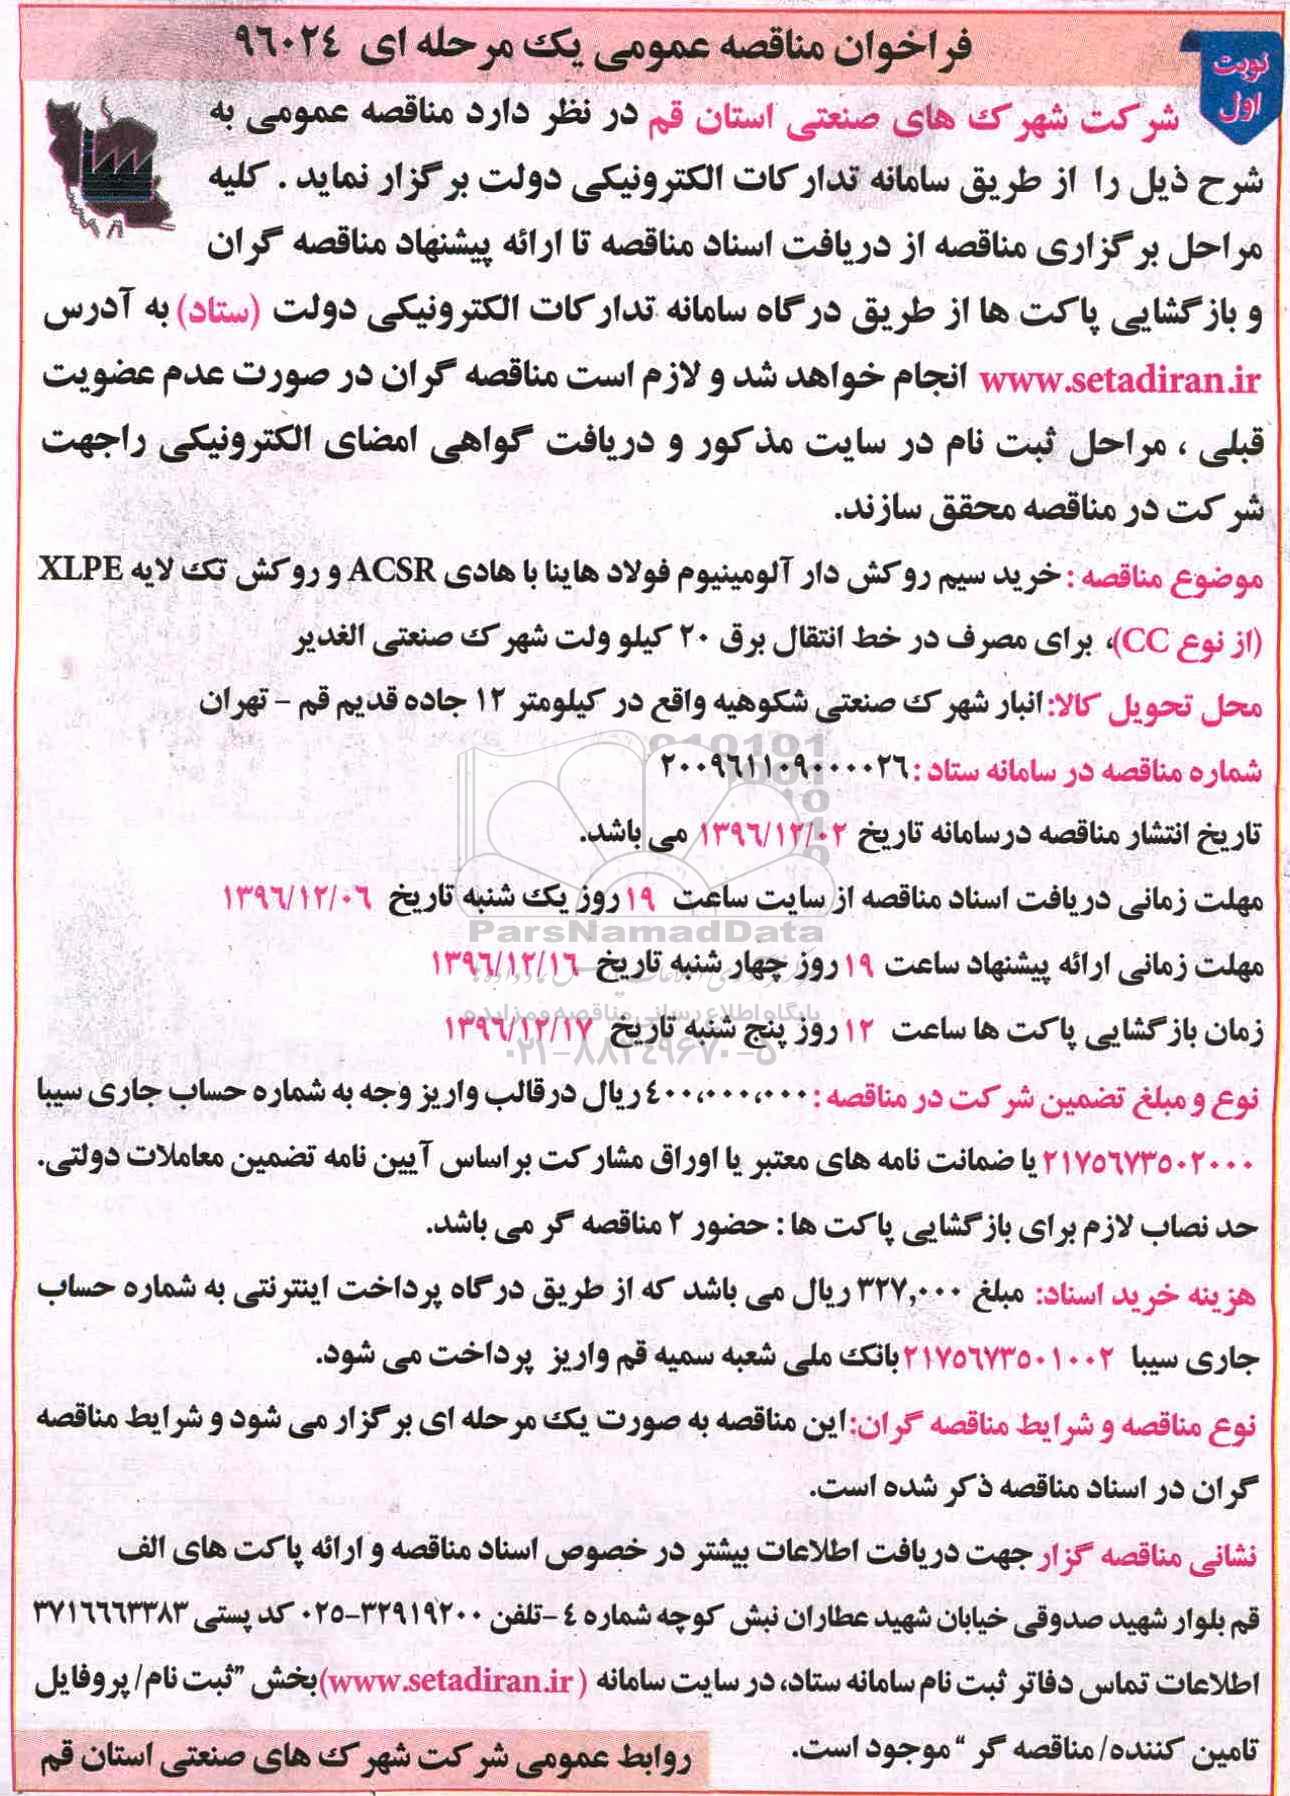 فراخوان مناقصه عمومی یک مرحله ای ۹۶۰۲۴
نوبت
اول
شرکت شهرک های صنعتی استان قم در نظر دارد مناقصه عمومی به
شرح ذیل را از طریق سامانه تدارکات الکترونیکی دولت برگزار نماید . کلیه
مراحل برگزاری مناقصه از دریافت اسناد مناقصه تا ارائه پیشنهاد مناقصه گران
و بازگشایی پاکت ها از طریق درگاه سامانه تدارکات الکترونیکی دولت (ستاد) به آدرس
www.setadiran.ir انجام خواهد شد و لازم است مناقصه گران در صورت عدم عضویت
قبلی ، مراحل ثبت نام در سایت مذکور و دریافت گواهی امضای الکترونیکی راجهت
شرکت در مناقصه محقق سازند.
موضوع مناقصه : خرید سیم روکش دار آلومینیوم فولاد هاینا با هادی ACSR و روکش تک لایه XLPE
(از نوع CC)، برای مصرف در خط انتقال برق ۲۰ کیلو ولت شهرک صنعتی الغدیر
محل تحویل کالا: انبار شهرک صنعتی شکوهیه واقع در کیلومتر ۱۲ جاده قدیم قم - تهران
شماره مناقصه در سامانه ستاد : ۲۰۰۹۶۱۱۰۹۰۰۰۰۲۶
تاریخ انتشار مناقصه درسامانه تاریخ ۱۳۹۶/۱۲/۰۲ می باشد.
مهلت زمانی دریافت اسناد مناقصه از سایت ساعت ۱۹ روز یک شنبه تاریخ ۱۳۹۶/۱۲/۰۶
ParsNamadData
مهلت زمانی ارائه پیشنهاد ساعت ۱۹ روز چهار شنبه تاریخ ۱۳۹۶/۱۲/۱۶
پایگاه اطلاع رسانی مناقصه و مزایده
زمان بازگشایی پاکت ها ساعت ۱۲ روز پنج شنبه تاریخ ۱۳۹۶/۱۲/۱۷
۰۲۱-۸۸۳۴۹۶۷۰-۵
نوع و مبلغ تضمین شرکت در مناقصه : ۴۰۰،۰۰۰،۰۰۰ ریال درقالب واریز وجه به شماره حساب جاری سیبا
۲۱۷۵۶۷۳۵۰۲۰۰۰ یا ضمانت نامه های معتبر یا اوراق مشارکت براساس آیین نامه تضمین معاملات دولتی.
حد نصاب لازم برای بازگشایی پاکت ها : حضور ۲ مناقصه گر می باشد.
هزینه خرید اسناد: مبلغ ۳۲۷,۰۰۰ ریال می باشد که از طریق درگاه پرداخت اینترنتی به شماره حساب
جاری سیبا ۲۱۷۵۶۷۳۵۰۱۰۰۲ بانک ملی شعبه سمیه قم واریز پرداخت می شود.
نوع مناقصه و شرایط مناقصه گران: این مناقصه به صورت یک مرحله ای برگزار می شود و شرایط مناقصه
گران در اسناد مناقصه ذکر شده است.
نشانی مناقصه گزار جهت دریافت اطلاعات بیشتر در خصوص اسناد مناقصه و ارائه پاکت های الف
قم بلوار شهید صدوقی خیابان شهید عطاران نبش کوچه شماره ۴ -تلفن ۳۲۹۱۹۲۰۰-۰۲۵ کد پستی ۳۷۱۶۶۶۳۳۸۳
اطلاعات تماس دفاتر ثبت نام سامانه ستاد، در سایت سامانه (www.setadiran.ir) بخش "ثبت نام/ پروفایل
تامین کننده/ مناقصه گر " موجود است.
روابط عمومی شرکت شهرک های صنعتی استان قم